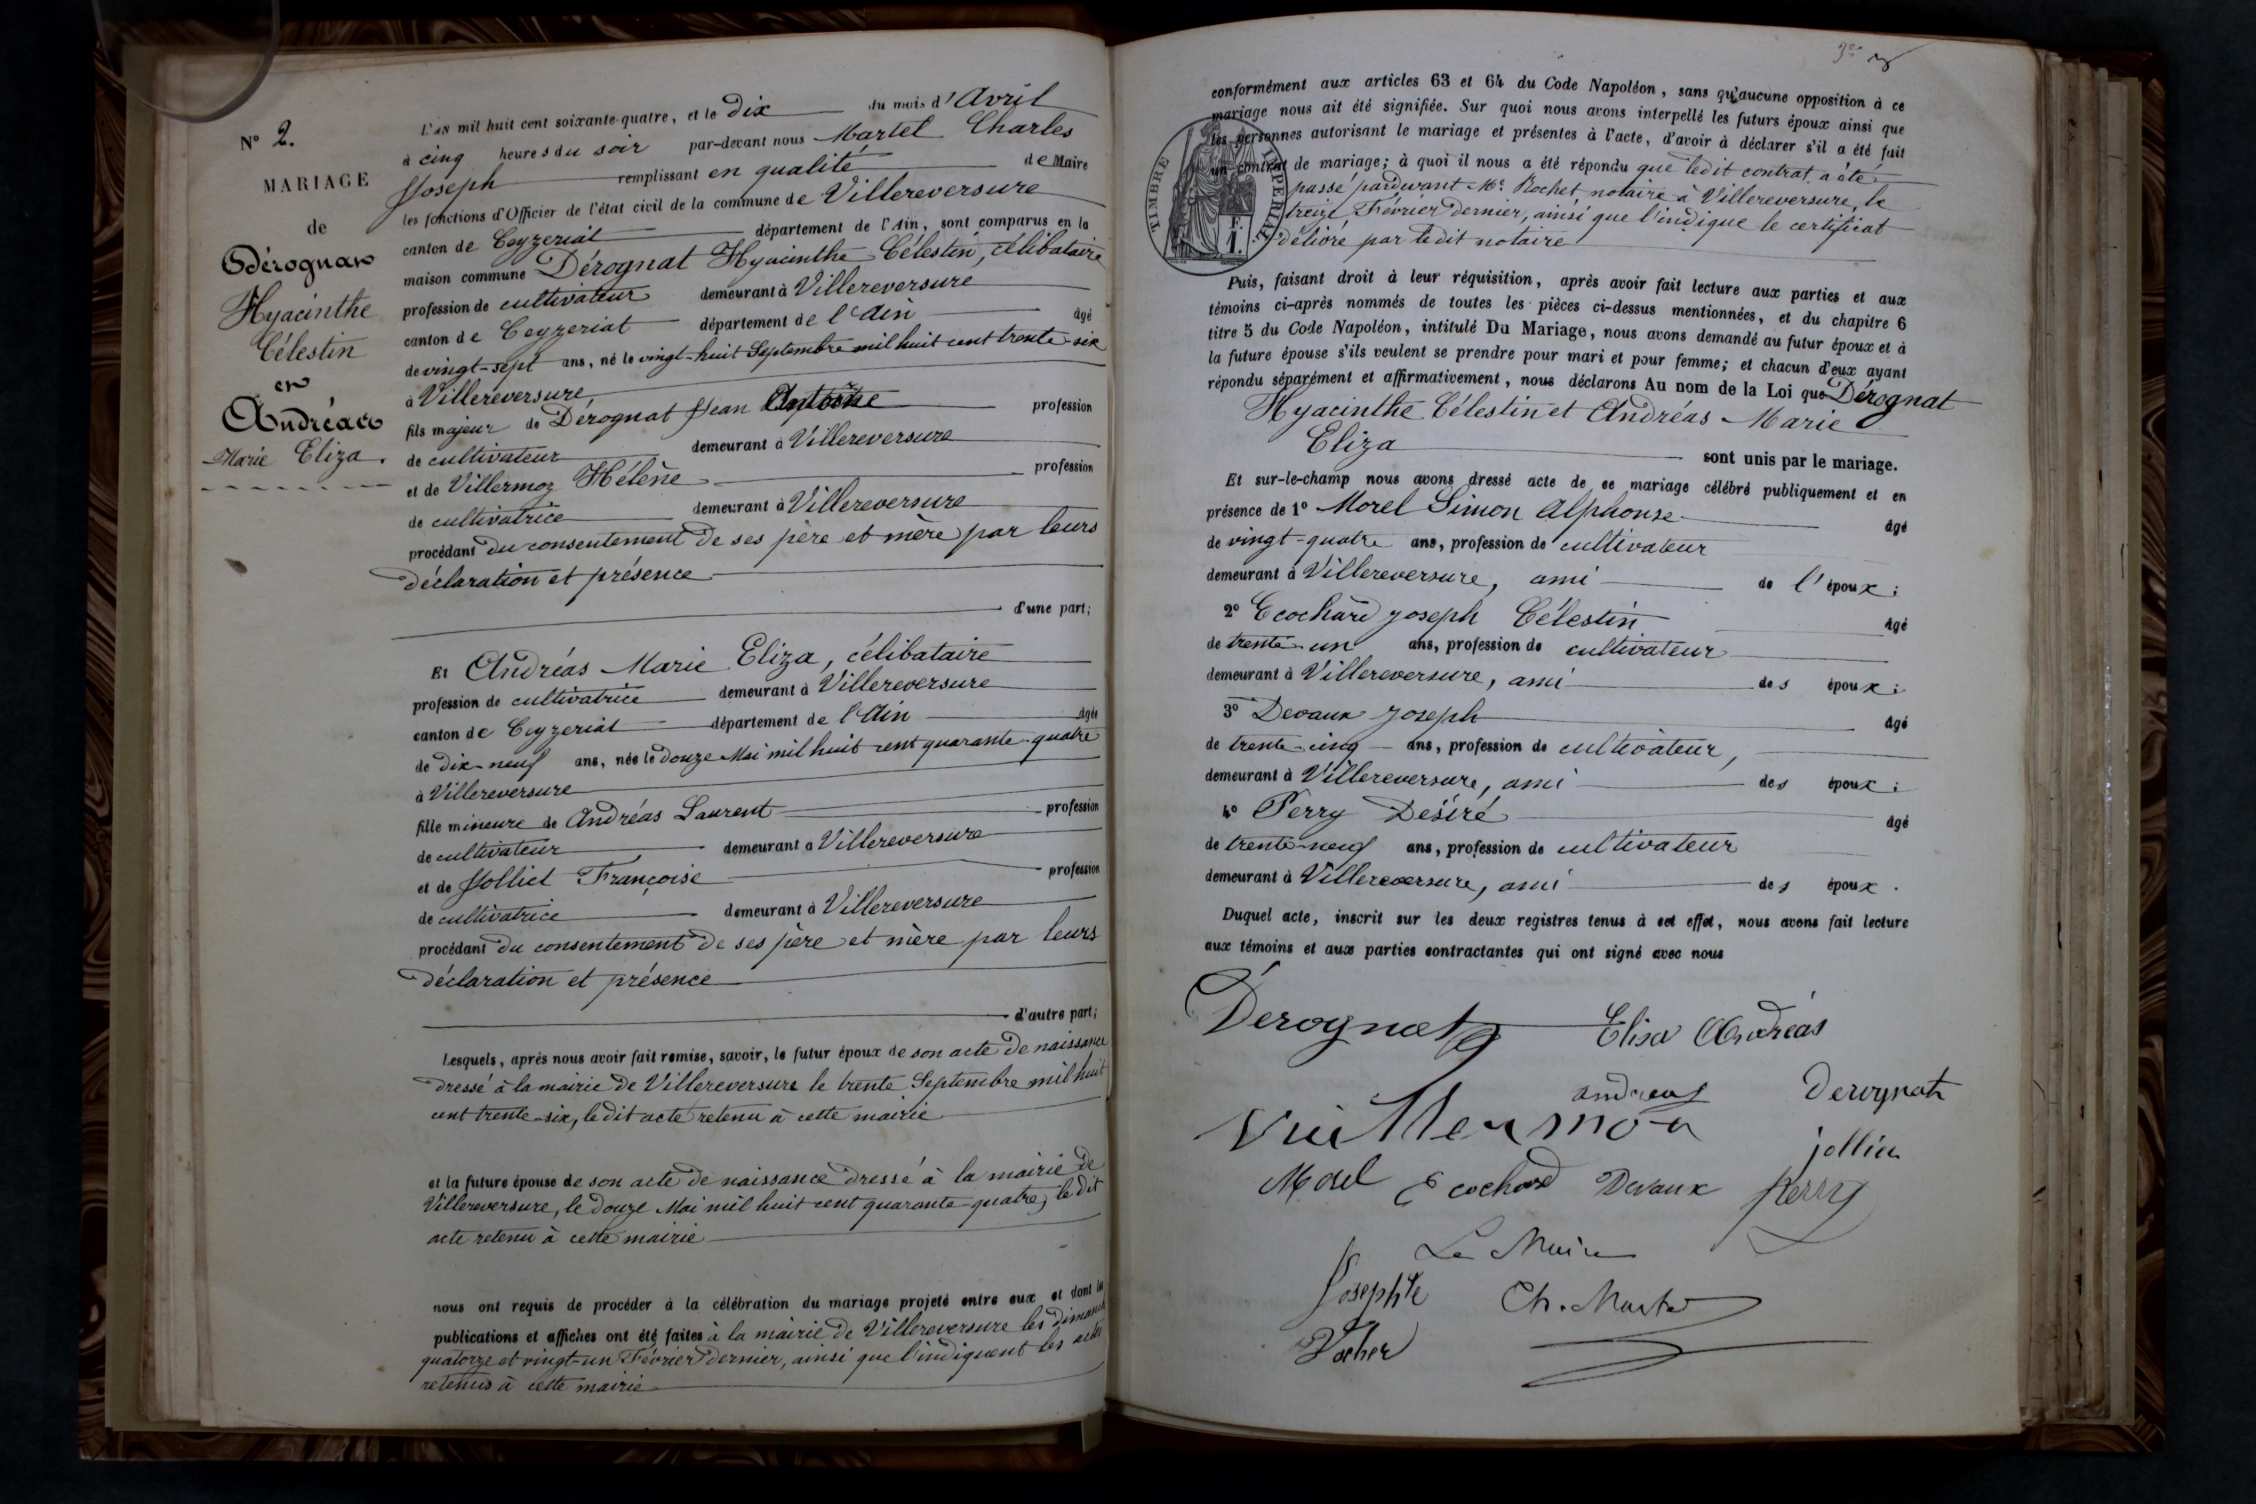 N° 2.
MARIAGE
de
Dérognat
Hyacinthe
Célestin
et
Andréas
Marie Eliza.
L'an mil huit cent soixante-quatre, et le Dix du mois d'Avril
à cinq heures du soir par-devant nous Martel Charles
Joseph remplissant en qualité de Maire
les fonctions d'Officier de l'état civil de la commune de Villereversure
canton de Ceyzeriat département de l'Ain, sont comparus en la
maison commune Dérognat Hyacinthe Célestin, célibataire
profession de cultivateur demeurant à Villereversure
canton de Ceyzeriat département de l'Ain âgé
de vingt-sept ans, né le vingt-huit Septembre mil huit cent trente-six
à Villereversure
fils majeur de Dérognat Jean Antoine profession
de cultivateur demeurant à Villereversure
et de Villermoz Hélène profession
de cultivatrice demeurant à Villereversure
procédant du consentement de ses père et mère par leurs
déclaration et présence
d'une part;
Et Andréas Marie Eliza, célibataire
profession de cultivatrice demeurant à Villereversure
canton de Ceyzeriat département de l'Ain âgée
de dix-neuf ans, née le douze Mai mil huit cent quarante-quatre
à Villereversure
fille mineure de Andréas Laurent profession
de cultivateur demeurant à Villereversure
et de Jolliet Françoise profession
de cultivatrice demeurant à Villereversure
procédant du consentement de ses père et mère par leurs
déclaration et présence
d'autre part;
Lesquels, après nous avoir fait remise, savoir, le futur époux de son acte de naissance
dressé à la mairie de Villereversure le trente Septembre mil huit
cent trente-six, le dit acte retenu à cette mairie
et la future épouse de son acte de naissance dressé à la mairie de
Villereversure, le douze Mai mil huit cent quarante-quatre, le dit
acte retenu à cette mairie
nous ont requis de procéder à la célébration du mariage projeté entre eux et dont les
publications et affiches ont été faites à la mairie de Villereversure les dimanch
quatorze et vingt-un Février dernier, ainsi que l'indiquent les actes
retenus à cette mairie
conformément aux articles 63 et 64 du Code Napoléon, sans qu'aucune opposition à ce
mariage nous ait été signifiée. Sur quoi nous avons interpellé les futurs époux ainsi que
les personnes autorisant le mariage et présentes à l'acte, d'avoir à déclarer s'il a été fait
un contrat de mariage; à quoi il nous a été répondu que ledit contrat a été
passé pardevant Me. Rochet notaire à Villereversure, le
treize Février dernier, ainsi que l'indique le certificat
délivré par le dit notaire
TIMBRE IMPERIAL
F.
1.
Puis, faisant droit à leur réquisition, après avoir fait lecture aux parties et aux
témoins ci-après nommés de toutes les pièces ci-dessus mentionnées, et du chapitre 6
titre 5 du Code Napoléon, intitulé Du Mariage, nous avons demandé au futur époux et à
la future épouse s'ils veulent se prendre pour mari et pour femme; et chacun d'eux ayant
répondu séparément et affirmativement, nous déclarons Au nom de la Loi que Dérognat
Hyacinthe Célestin et Andréas Marie
Eliza sont unis par le mariage.
Et sur-le-champ nous avons dressé acte de ce mariage célébré publiquement et en
présence de 1° Morel Simon Alphonse âgé
de vingt-quatre ans, profession de cultivateur
demeurant à Villereversure, ami de l'époux;
2° Ecochard Joseph Célestin âgé
de trente-un ans, profession de cultivateur
demeurant à Villereversure, ami des époux;
3° Devaux Joseph âgé
de trente-cinq ans, profession de cultivateur,
demeurant à Villereversure, ami des époux;
4° Perry Désiré âgé
de trente-neuf ans, profession de cultivateur
demeurant à Villereversure, ami des époux.
Duquel acte, inscrit sur les deux registres tenus à cet effet, nous avons fait lecture
aux témoins et aux parties contractantes qui ont signé avec nous
Dérognat Elisa Andréas
andreas Derognat
Vuillermoz
jolliet
Morel Ecochard Devaux Perry
Le Maire
Josephte Ch. Martel
Vacher